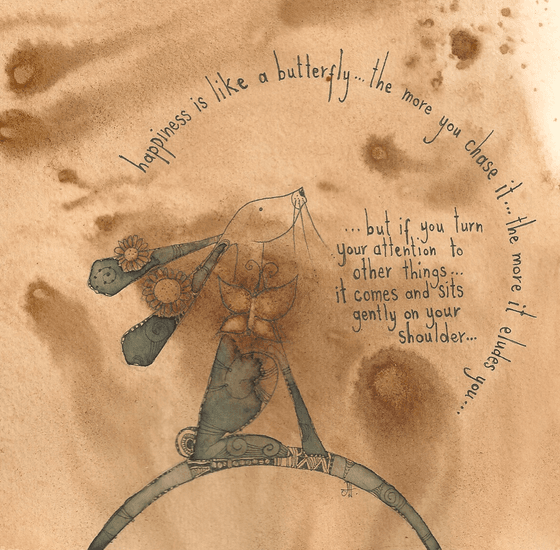 happiness is like a butterfly... the more you chase it... the more it eludes you...
...but if you turn
your attention to
other things...
it comes and sits
gently on your
shoulder...